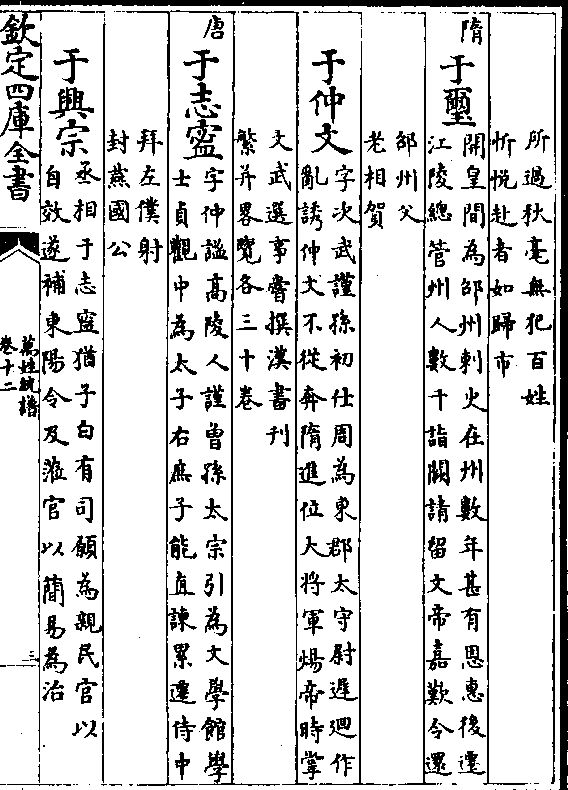 所過秋毫無犯百姓
忻悅赴者如歸市
隋
于璽
開皇間為邵州刺史在州數年甚有恩惠後遷
江陵總管州人數千詣闕請留文帝嘉歎令還
邵州父
老相賀
于仲文
字次武謹孫初仕周為東郡太守尉遲迴作
亂誘仲文不從奔隋進位大將軍煬帝時掌
文武選事嘗撰漢書刊
繁并畧覽各三十卷
唐
于志寧
字仲謐髙陵人謹曾孫太宗引為文學館學
士貞觀中為太子右庶子能直諫累遷侍中
拜左僕射
封燕國公
于興宗
丞相于志寧猶子白有司願為親民官以
自效遂補東陽令及涖官以簡易為治
欽定四庫全書
萬姓統譜
卷十二
三